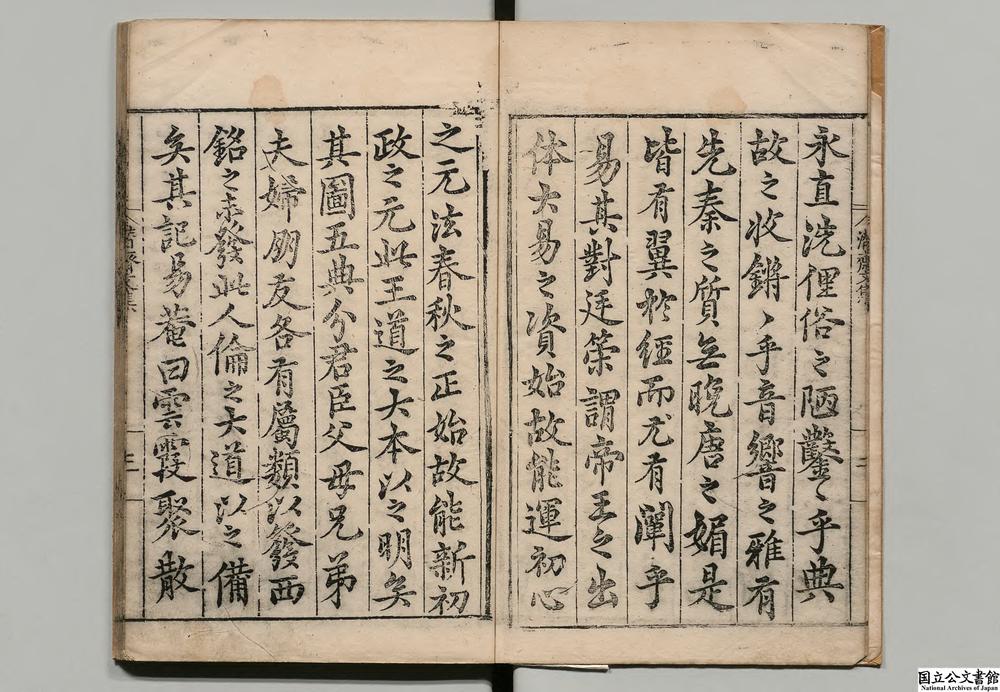 永直洗俚俗之陋鑿〻乎典
故之收鏘〻乎音響之雅有
先秦之質無晩唐之媚是
皆有翼於經而尤有闡乎
易其對廷策謂帝王之出
体大易之資始故能運初心
之元法春秋之正始故能新初
政之元此王道之大本以之明矣
其圖五典分君臣父母兄弟
夫婦朋友各有屬類以發西
銘之未發此人倫之大道以之備
矣其記易菴曰雲霞聚散
国立公文書館
National Archives of Japan